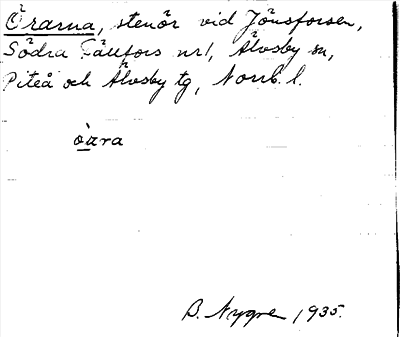 Örarna, stenör vid Jönsforsen,
Södra Fällfors nr 1, Älvsby sn,
Piteå och Älvsby tg, Norrb. l.
òara
B. Nygren 1935.